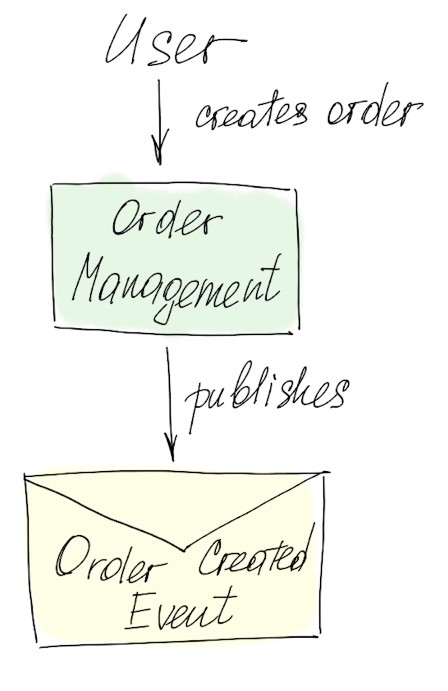 User
creates order
Order
Management
publishes
Order Created
Event